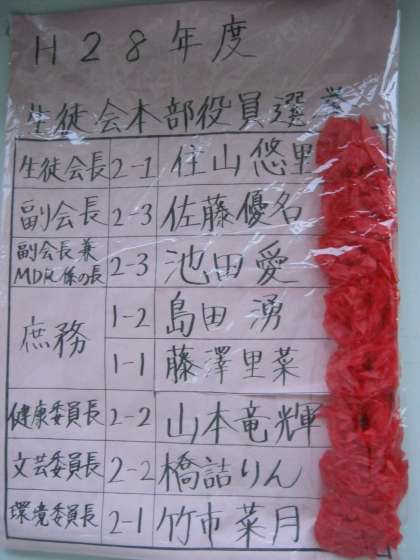 H28年度
生徒会本部役員選挙
生徒会長 2-1 住山悠里
副会長 2-3 佐藤優名
副会長兼
MDR係の長 2-3 池田愛
庶務 1-2 島田湧
1-1 藤澤里菜
健康委員長 2-2 山本竜輝
文芸委員長 2-2 橋詰りん
環境委員長 2-1 竹市菜月